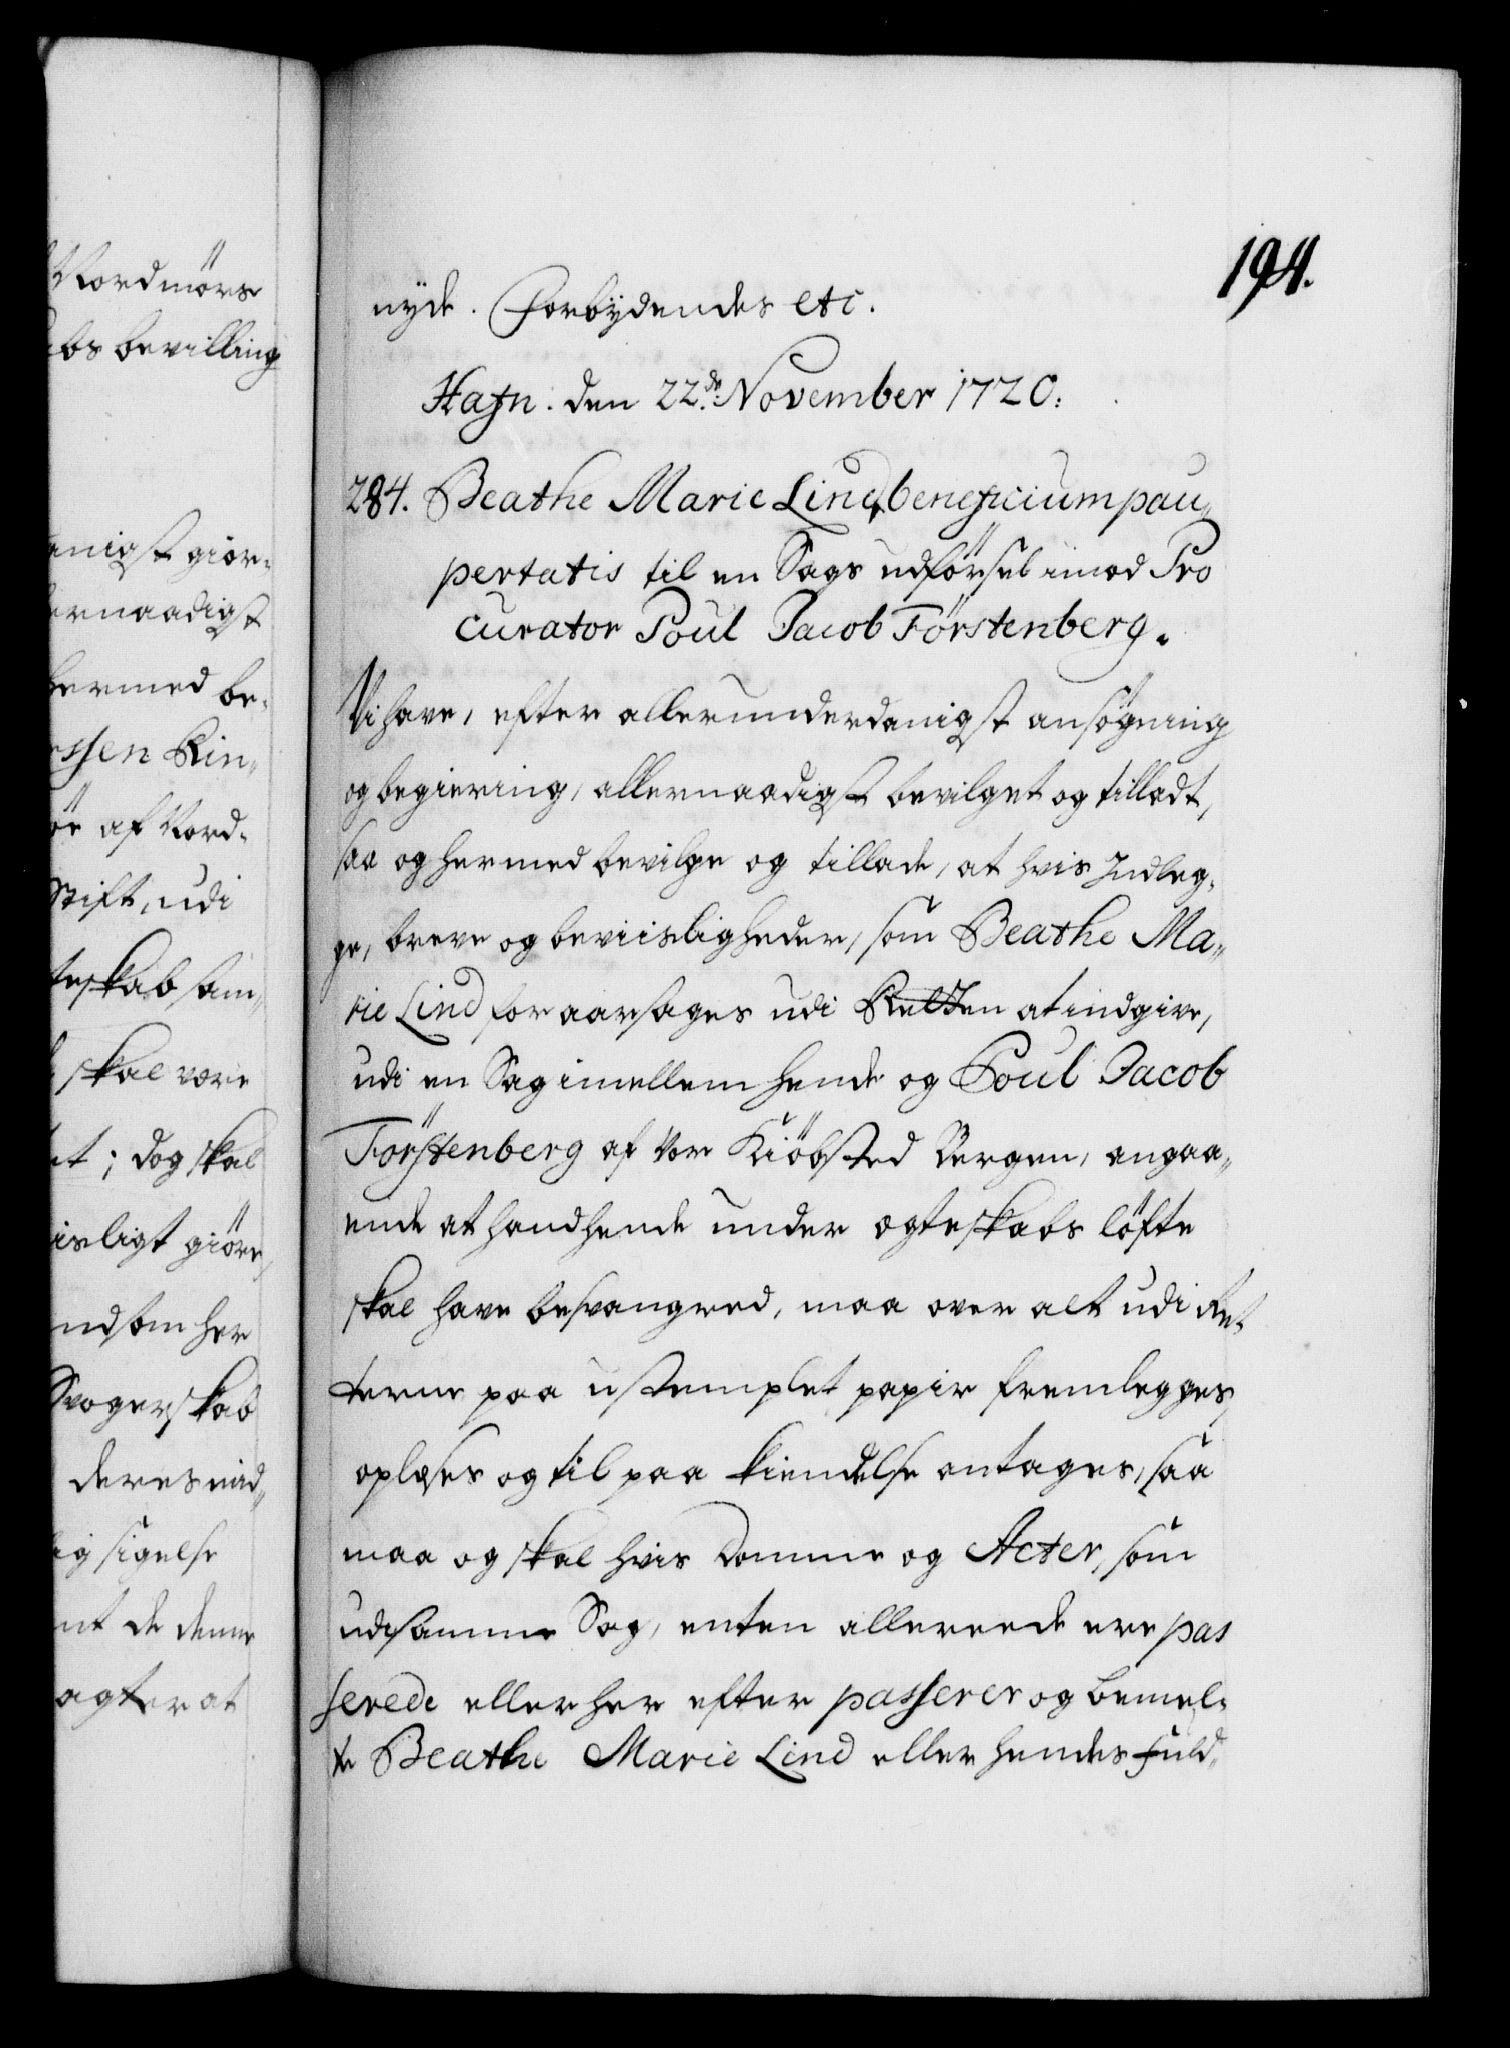 Nordmörs
bs bevilling
anigst giör-
ernaadigst
hermed be-
ssen Rin-
ör af Nord-
Stift, udi
teskab sam-
skal være
et; dog skal
isligt giöre,
ndsom her
Svogerskab
deres eenig
ig sigelse
nt de denne
agter at
194.
nyde. Forbydendes etc.
Hafn: den 22.de November 1720.
284. Beathe Marie Lind, beneficium pau-
pertatis til en Sags udförsel imod Pro
curator Poul Jacob Förstenberg.
Vi have, efter allerunderdanigst ansögning
og begiering, allernaadigst bevilget og tilladt,
saa og hermed bevilge og tillade, at hvis Indleg-
ge, breve og beviisligheder, som Beathe Ma-
rie Lind foraarsages udi Retten at indgive,
udi en Sag imellem hende og Poul Jacob
Förstenberg af vor Kiöbsted Bergen, angaa-
ende at hand hende under ægteskabs löfte
skal have besvangred, maa over alt udi Ret-
terne paa ustemplet papir fremlegges,
oplæses og til paa kiendelse antages, saa
maa og skal hvis Domme og Acter, som
udi samme Sag, enten allereede ere pas
serede eller her efter passerer og bemel-
te Beathe Marie Lind eller hendes Fuld-